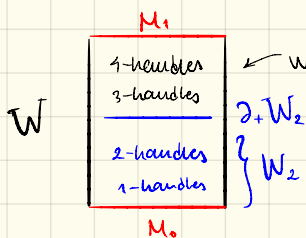 M₁
4-handles
3-handles
W
∂₊W₂
2-handles
W₂
1-handles
M₀